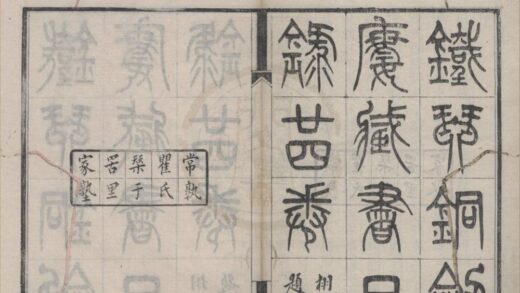 鐵琴銅劍
樓藏書目
錄廿四卷
栩
題
常熟
瞿氏
栞于
罟里
家塾